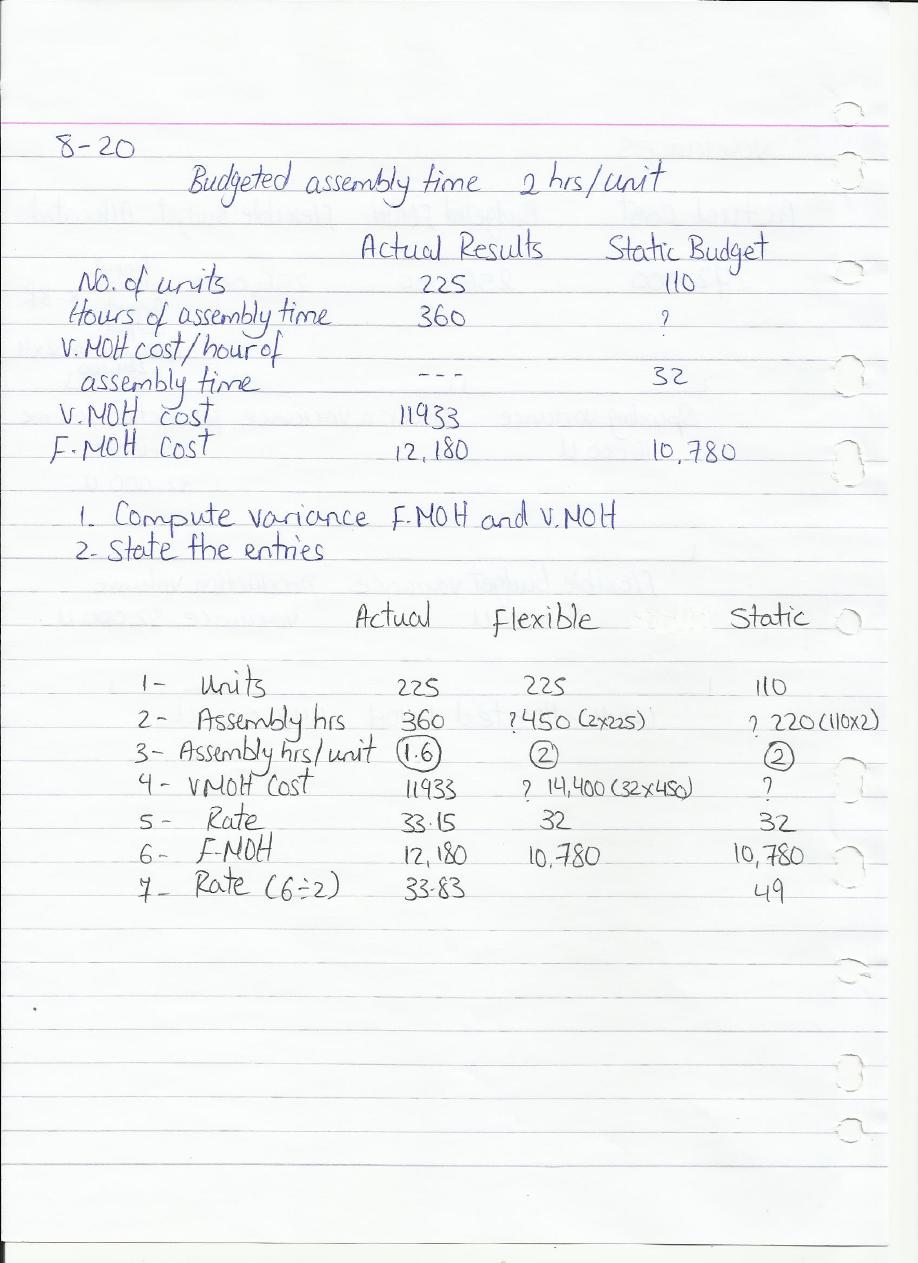 8-20
Budgeted assembly time 2 hrs/unit
Actual Results Static Budget
No. of units 225 110
Hours of assembly time 360 ?
V. MOH cost/hour of
assembly time --- 32
V. MOH cost 11933
F. MOH Cost 12,180 10,780
1. Compute variance F.MOH and V.MOH
2- State the entries
Actual Flexible Static
1- Units 225 225 110
2- Assembly hrs 360 ? 450 (2x225) ? 220 (110x2)
3- Assembly hrs/unit 1.6 2 2
4- VMOH Cost 11933 ? 14,400 (32x450) ?
5- Rate 33.15 32 32
6- F-MOH 12,180 10,780 10,780
7- Rate (6÷2) 33.83 49